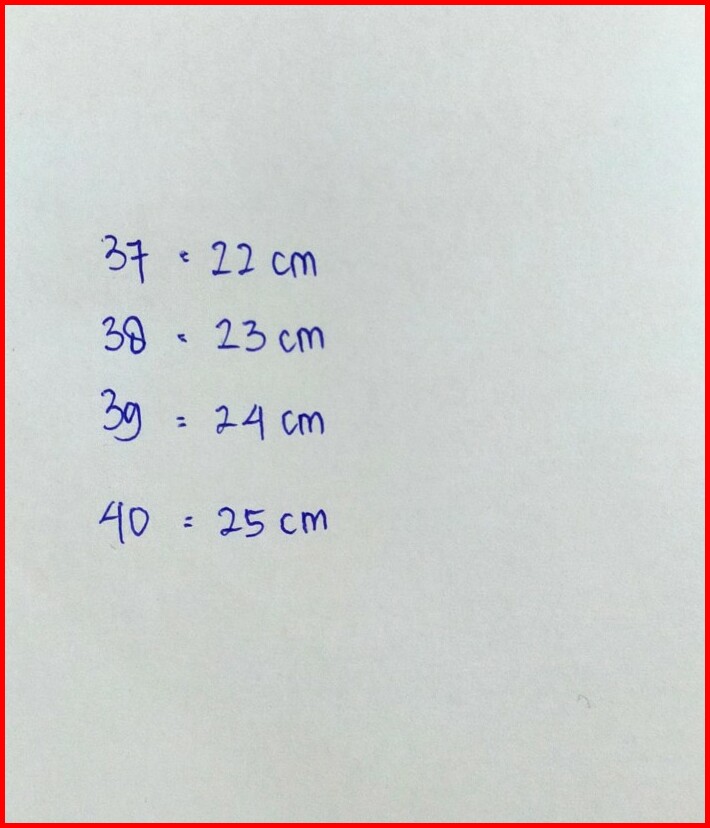 37 = 22 cm
38 = 23 cm
39 = 24 cm
40 = 25 cm